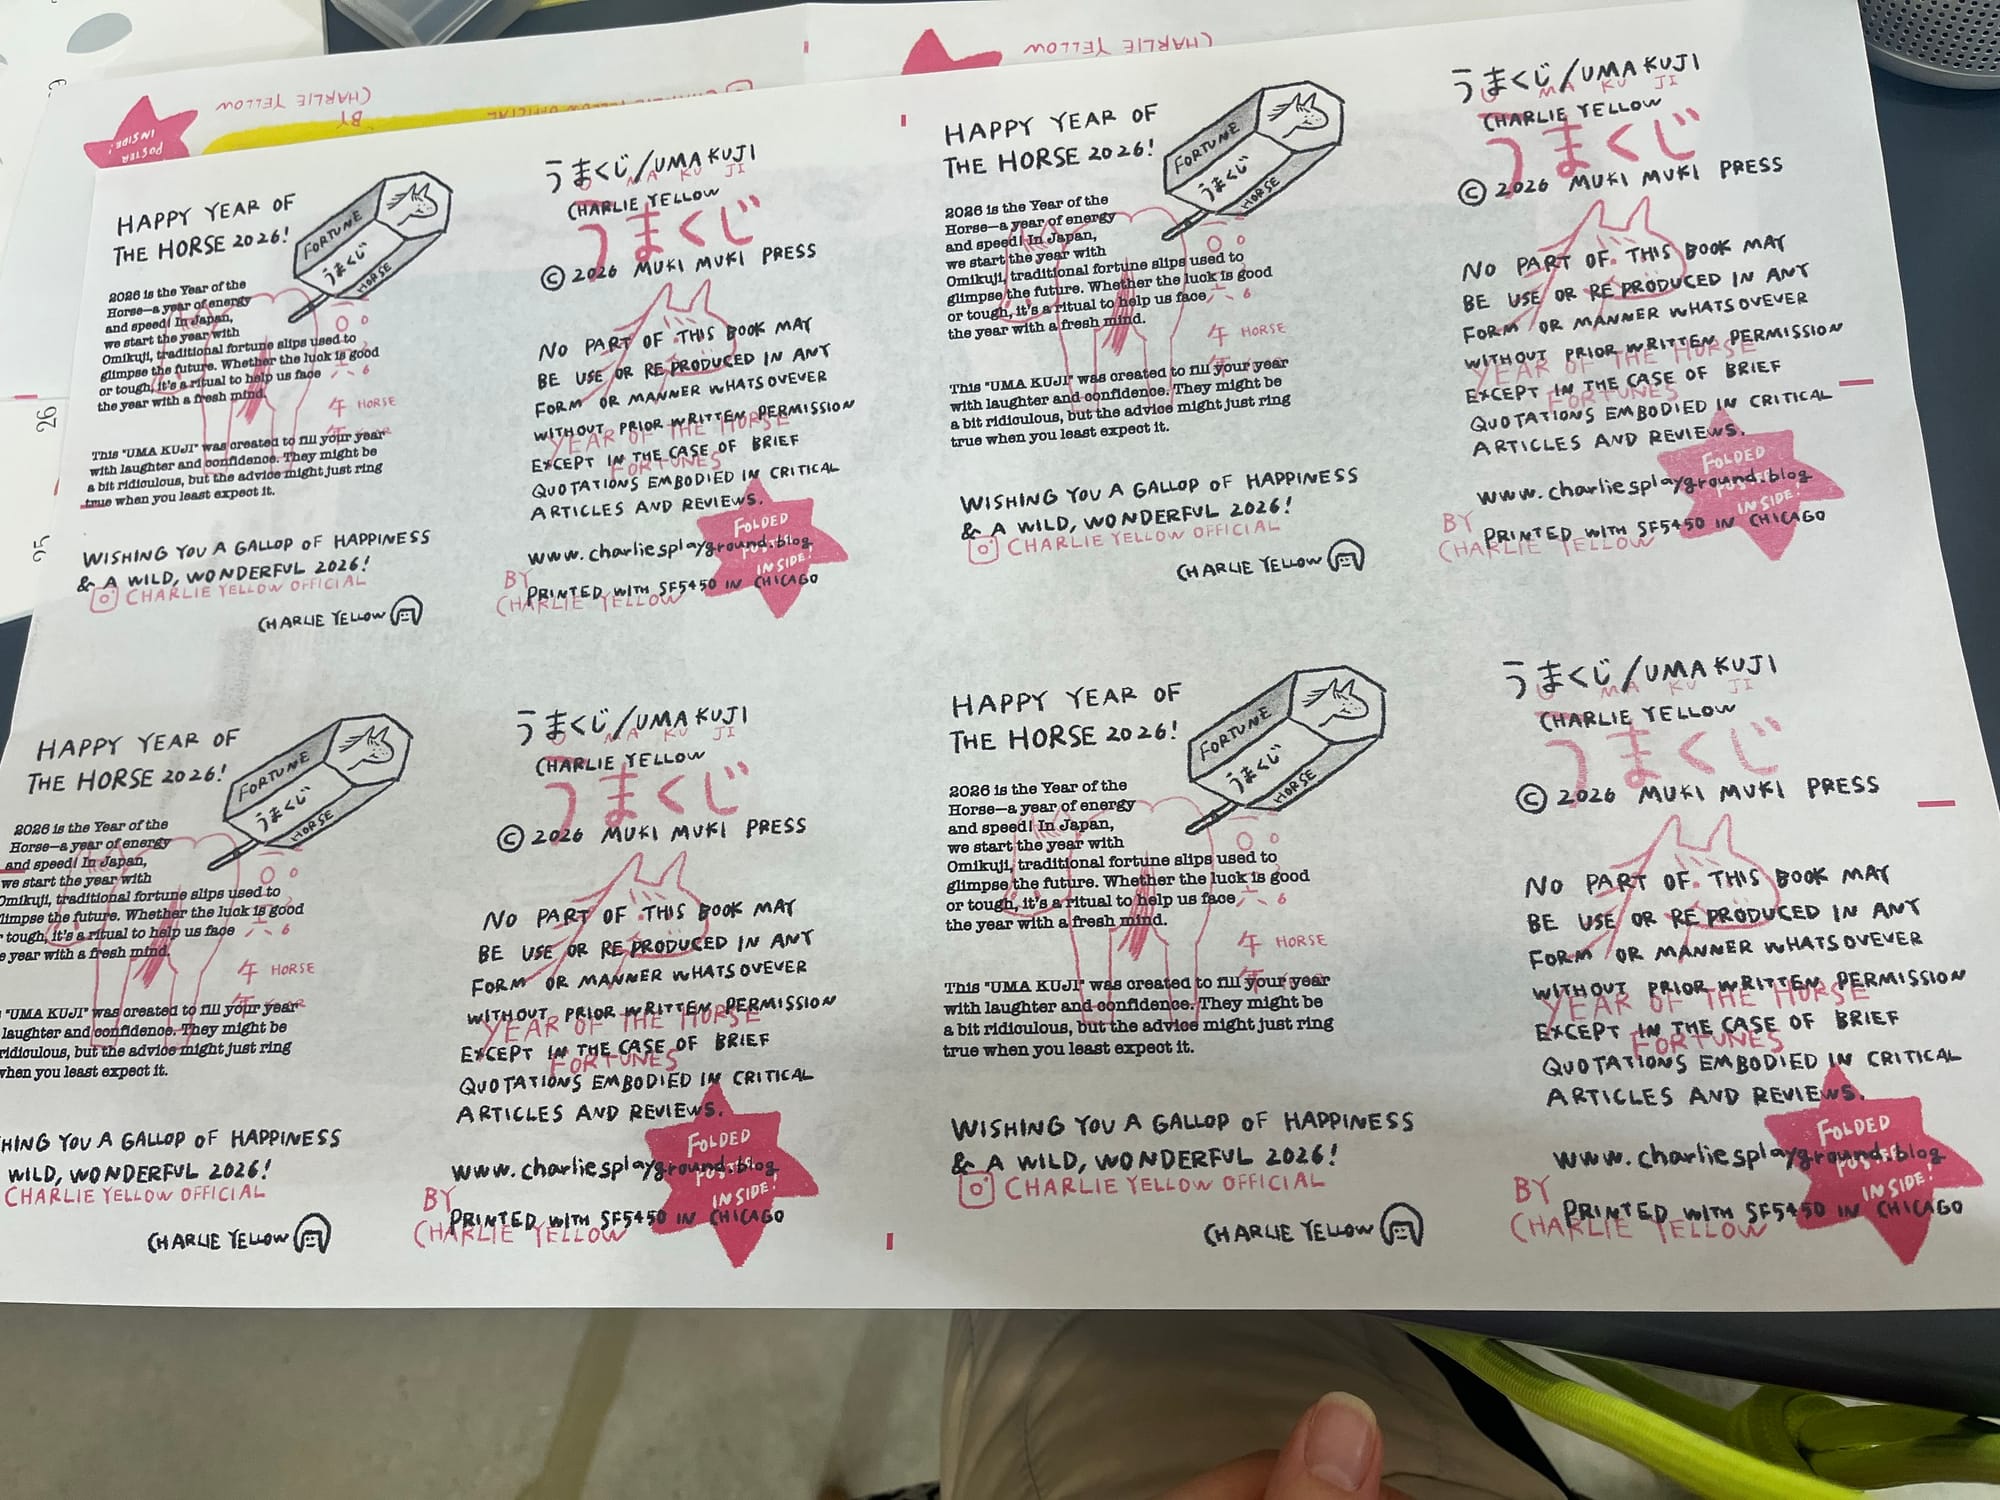 CHARLIE YELLOW
BY
CHARLIE YELLOW OFFICIAL
CHARLIE YELLOW
POSTER
INSIDE!
26
25
HAPPY YEAR OF
THE HORSE 2026!
FORTUNE
うまくじ
HORSE
2026 is the Year of the
Horse—a year of energy
and speed! In Japan,
we start the year with
Omikuji, traditional fortune slips used to
glimpse the future. Whether the luck is good
or tough, it's a ritual to help us face
the year with a fresh mind.
六 6
午 HORSE
年 YEAR
This "UMA KUJI" was created to fill your year
with laughter and confidence. They might be
a bit ridiculous, but the advice might just ring
true when you least expect it.
WISHING YOU A GALLOP OF HAPPINESS
& A WILD, WONDERFUL 2026!
CHARLIE YELLOW OFFICIAL
CHARLIE YELLOW
うまくじ/UMA KUJI
U MA KU JI
CHARLIE YELLOW
うまくじ
© 2026 MUKI MUKI PRESS
NO PART OF THIS BOOK MAY
BE USE OR REPRODUCED IN ANY
FORM OR MANNER WHATSOVEVER
WITHOUT PRIOR WRITTEN PERMISSION
YEAR OF THE HORSE
EXCEPT IN THE CASE OF BRIEF
FORTUNES
QUOTATIONS EMBODIED IN CRITICAL
ARTICLES AND REVIEWS.
FOLDED
POSTER
INSIDE!
www.charliesplayground.blog
BY
PRINTED WITH SF5450 IN CHICAGO
CHARLIE YELLOW
HAPPY YEAR OF
THE HORSE 2026!
FORTUNE
うまくじ
HORSE
2026 is the Year of the
Horse—a year of energy
and speed! In Japan,
we start the year with
Omikuji, traditional fortune slips used to
glimpse the future. Whether the luck is good
or tough, it's a ritual to help us face
the year with a fresh mind.
六 6
午 HORSE
年 YEAR
This "UMA KUJI" was created to fill your year
with laughter and confidence. They might be
a bit ridiculous, but the advice might just ring
true when you least expect it.
WISHING YOU A GALLOP OF HAPPINESS
& A WILD, WONDERFUL 2026!
CHARLIE YELLOW OFFICIAL
CHARLIE YELLOW
うまくじ/UMA KUJI
U MA KU JI
CHARLIE YELLOW
うまくじ
© 2026 MUKI MUKI PRESS
NO PART OF THIS BOOK MAY
BE USE OR REPRODUCED IN ANY
FORM OR MANNER WHATSOVEVER
WITHOUT PRIOR WRITTEN PERMISSION
YEAR OF THE HORSE
EXCEPT IN THE CASE OF BRIEF
FORTUNES
QUOTATIONS EMBODIED IN CRITICAL
ARTICLES AND REVIEWS.
FOLDED
POSTER
INSIDE!
www.charliesplayground.blog
BY
PRINTED WITH SF5450 IN CHICAGO
CHARLIE YELLOW
HAPPY YEAR OF
THE HORSE 2026!
FORTUNE
うまくじ
HORSE
2026 is the Year of the
Horse—a year of energy
and speed! In Japan,
we start the year with
Omikuji, traditional fortune slips used to
limpse the future. Whether the luck is good
r tough, it's a ritual to help us face
e year with a fresh mind.
六 6
午 HORSE
年 YEAR
"UMA KUJI" was created to fill your year
laughter and confidence. They might be
ridiculous, but the advice might just ring
when you least expect it.
HING YOU A GALLOP OF HAPPINESS
WILD, WONDERFUL 2026!
CHARLIE YELLOW OFFICIAL
CHARLIE YELLOW
うまくじ/UMA KUJI
U MA KU JI
CHARLIE YELLOW
うまくじ
© 2026 MUKI MUKI PRESS
NO PART OF THIS BOOK MAY
BE USE OR REPRODUCED IN ANY
FORM OR MANNER WHATSOVEVER
WITHOUT PRIOR WRITTEN PERMISSION
YEAR OF THE HORSE
EXCEPT IN THE CASE OF BRIEF
FORTUNES
QUOTATIONS EMBODIED IN CRITICAL
ARTICLES AND REVIEWS.
FOLDED
POSTER
INSIDE!
www.charliesplayground.blog
BY
PRINTED WITH SF5450 IN CHICAGO
CHARLIE YELLOW
HAPPY YEAR OF
THE HORSE 2026!
FORTUNE
うまくじ
HORSE
2026 is the Year of the
Horse—a year of energy
and speed! In Japan,
we start the year with
Omikuji, traditional fortune slips used to
glimpse the future. Whether the luck is good
or tough, it's a ritual to help us face
the year with a fresh mind.
六 6
午 HORSE
年 YEAR
This "UMA KUJI" was created to fill your year
with laughter and confidence. They might be
a bit ridiculous, but the advice might just ring
true when you least expect it.
WISHING YOU A GALLOP OF HAPPINESS
& A WILD, WONDERFUL 2026!
CHARLIE YELLOW OFFICIAL
CHARLIE YELLOW
うまくじ/UMA KUJI
U MA KU JI
CHARLIE YELLOW
うまくじ
© 2026 MUKI MUKI PRESS
NO PART OF THIS BOOK MAY
BE USE OR REPRODUCED IN ANY
FORM OR MANNER WHATSOVEVER
WITHOUT PRIOR WRITTEN PERMISSION
YEAR OF THE HORSE
EXCEPT IN THE CASE OF BRIEF
FORTUNES
QUOTATIONS EMBODIED IN CRITICAL
ARTICLES AND REVIEWS.
FOLDED
POSTER
INSIDE!
www.charliesplayground.blog
BY
PRINTED WITH SF5450 IN CHICAGO
CHARLIE YELLOW